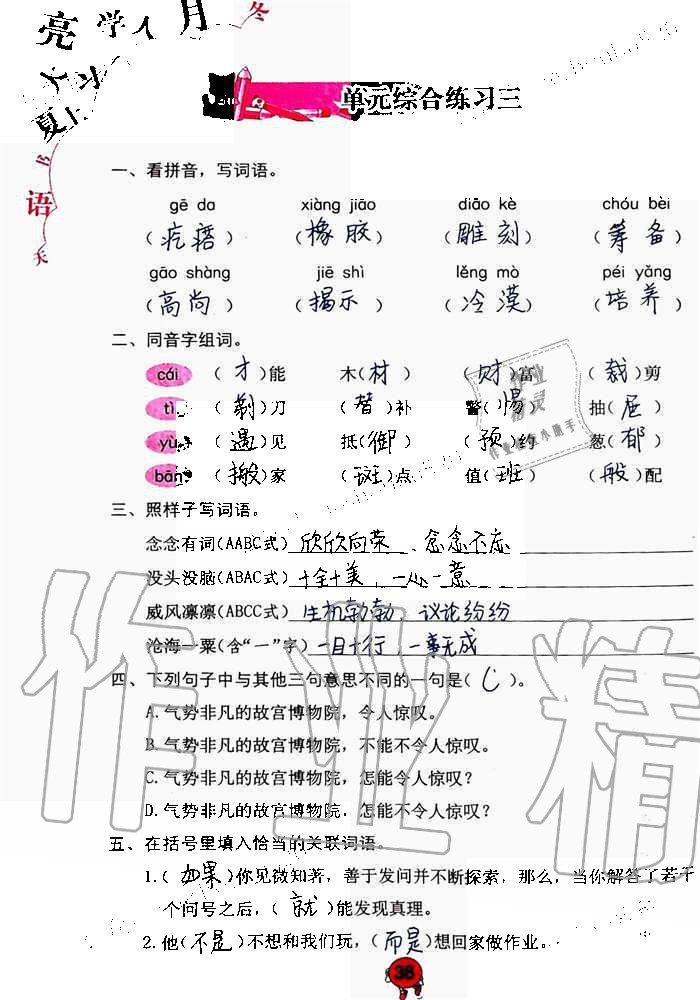 亮学人月冬
夏
语
天
单元综合练习三
一、看拼音，写词语。
gē da xiàng jiāo diāo kè chóu bèi
（疙瘩）（橡胶）（雕刻）（筹备）
gāo shàng jiē shì lěng mò péi yǎng
（高尚）（揭示）（冷漠）（培养）
二、同音字组词。
cái （才）能 木（材） （财）富 （裁）剪
tì （剃）刀 （替）补 警（惕） 抽（屉）
yù （遇）见 抵（御） （预）约 葱（郁）
bān （搬）家 （斑）点 值（班） （般）配
三、照样子写词语。
念念有词（AABC式）欣欣向荣、念念不忘
没头没脑（ABAC式）十全十美，一心一意
威风凛凛（ABCC式）生机勃勃，议论纷纷
沧海一粟（含“一”字）一目十行，一事无成
四、下列句子中与其他三句意思不同的一句是（C）。
A.气势非凡的故宫博物院，令人惊叹。
B.气势非凡的故宫博物院，不能不令人惊叹。
C.气势非凡的故宫博物院，怎能令人惊叹？
D.气势非凡的故宫博物院，怎能不令人惊叹？
五、在括号里填入恰当的关联词语。
1.（如果）你见微知著，善于发问并不断探索，那么，当你解答了若干
个问号之后，（就）能发现真理。
2.他（不是）不想和我们玩，（而是）想回家做作业。
36
作业精